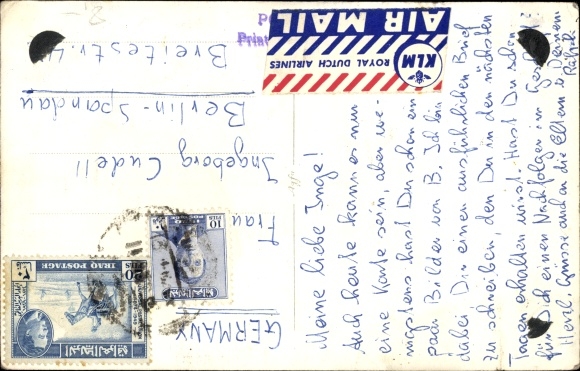 Meine liebe Inge!
Auch heute kann es nur
eine Karte sein, aber we-
nigstens hast Du schon ein
paar Bilder von B. Ich bin
dabei Dir einen ausführlichen Brief
zu schreiben, den Du in den nächsten
Tagen erhalten wirst. Hast Du schon
für Dich einen Nachfolger im Gesch.?
Herzl. Grüsse auch an die Eltern v. Deinem
Ralph.
AIR MAIL
KLM
ROYAL DUTCH AIRLINES
Frau
Ingeborg Cudell
Berlin-Spandau
Breitestr.
GERMANY
IRAQ POSTAGE
20
FILS
10